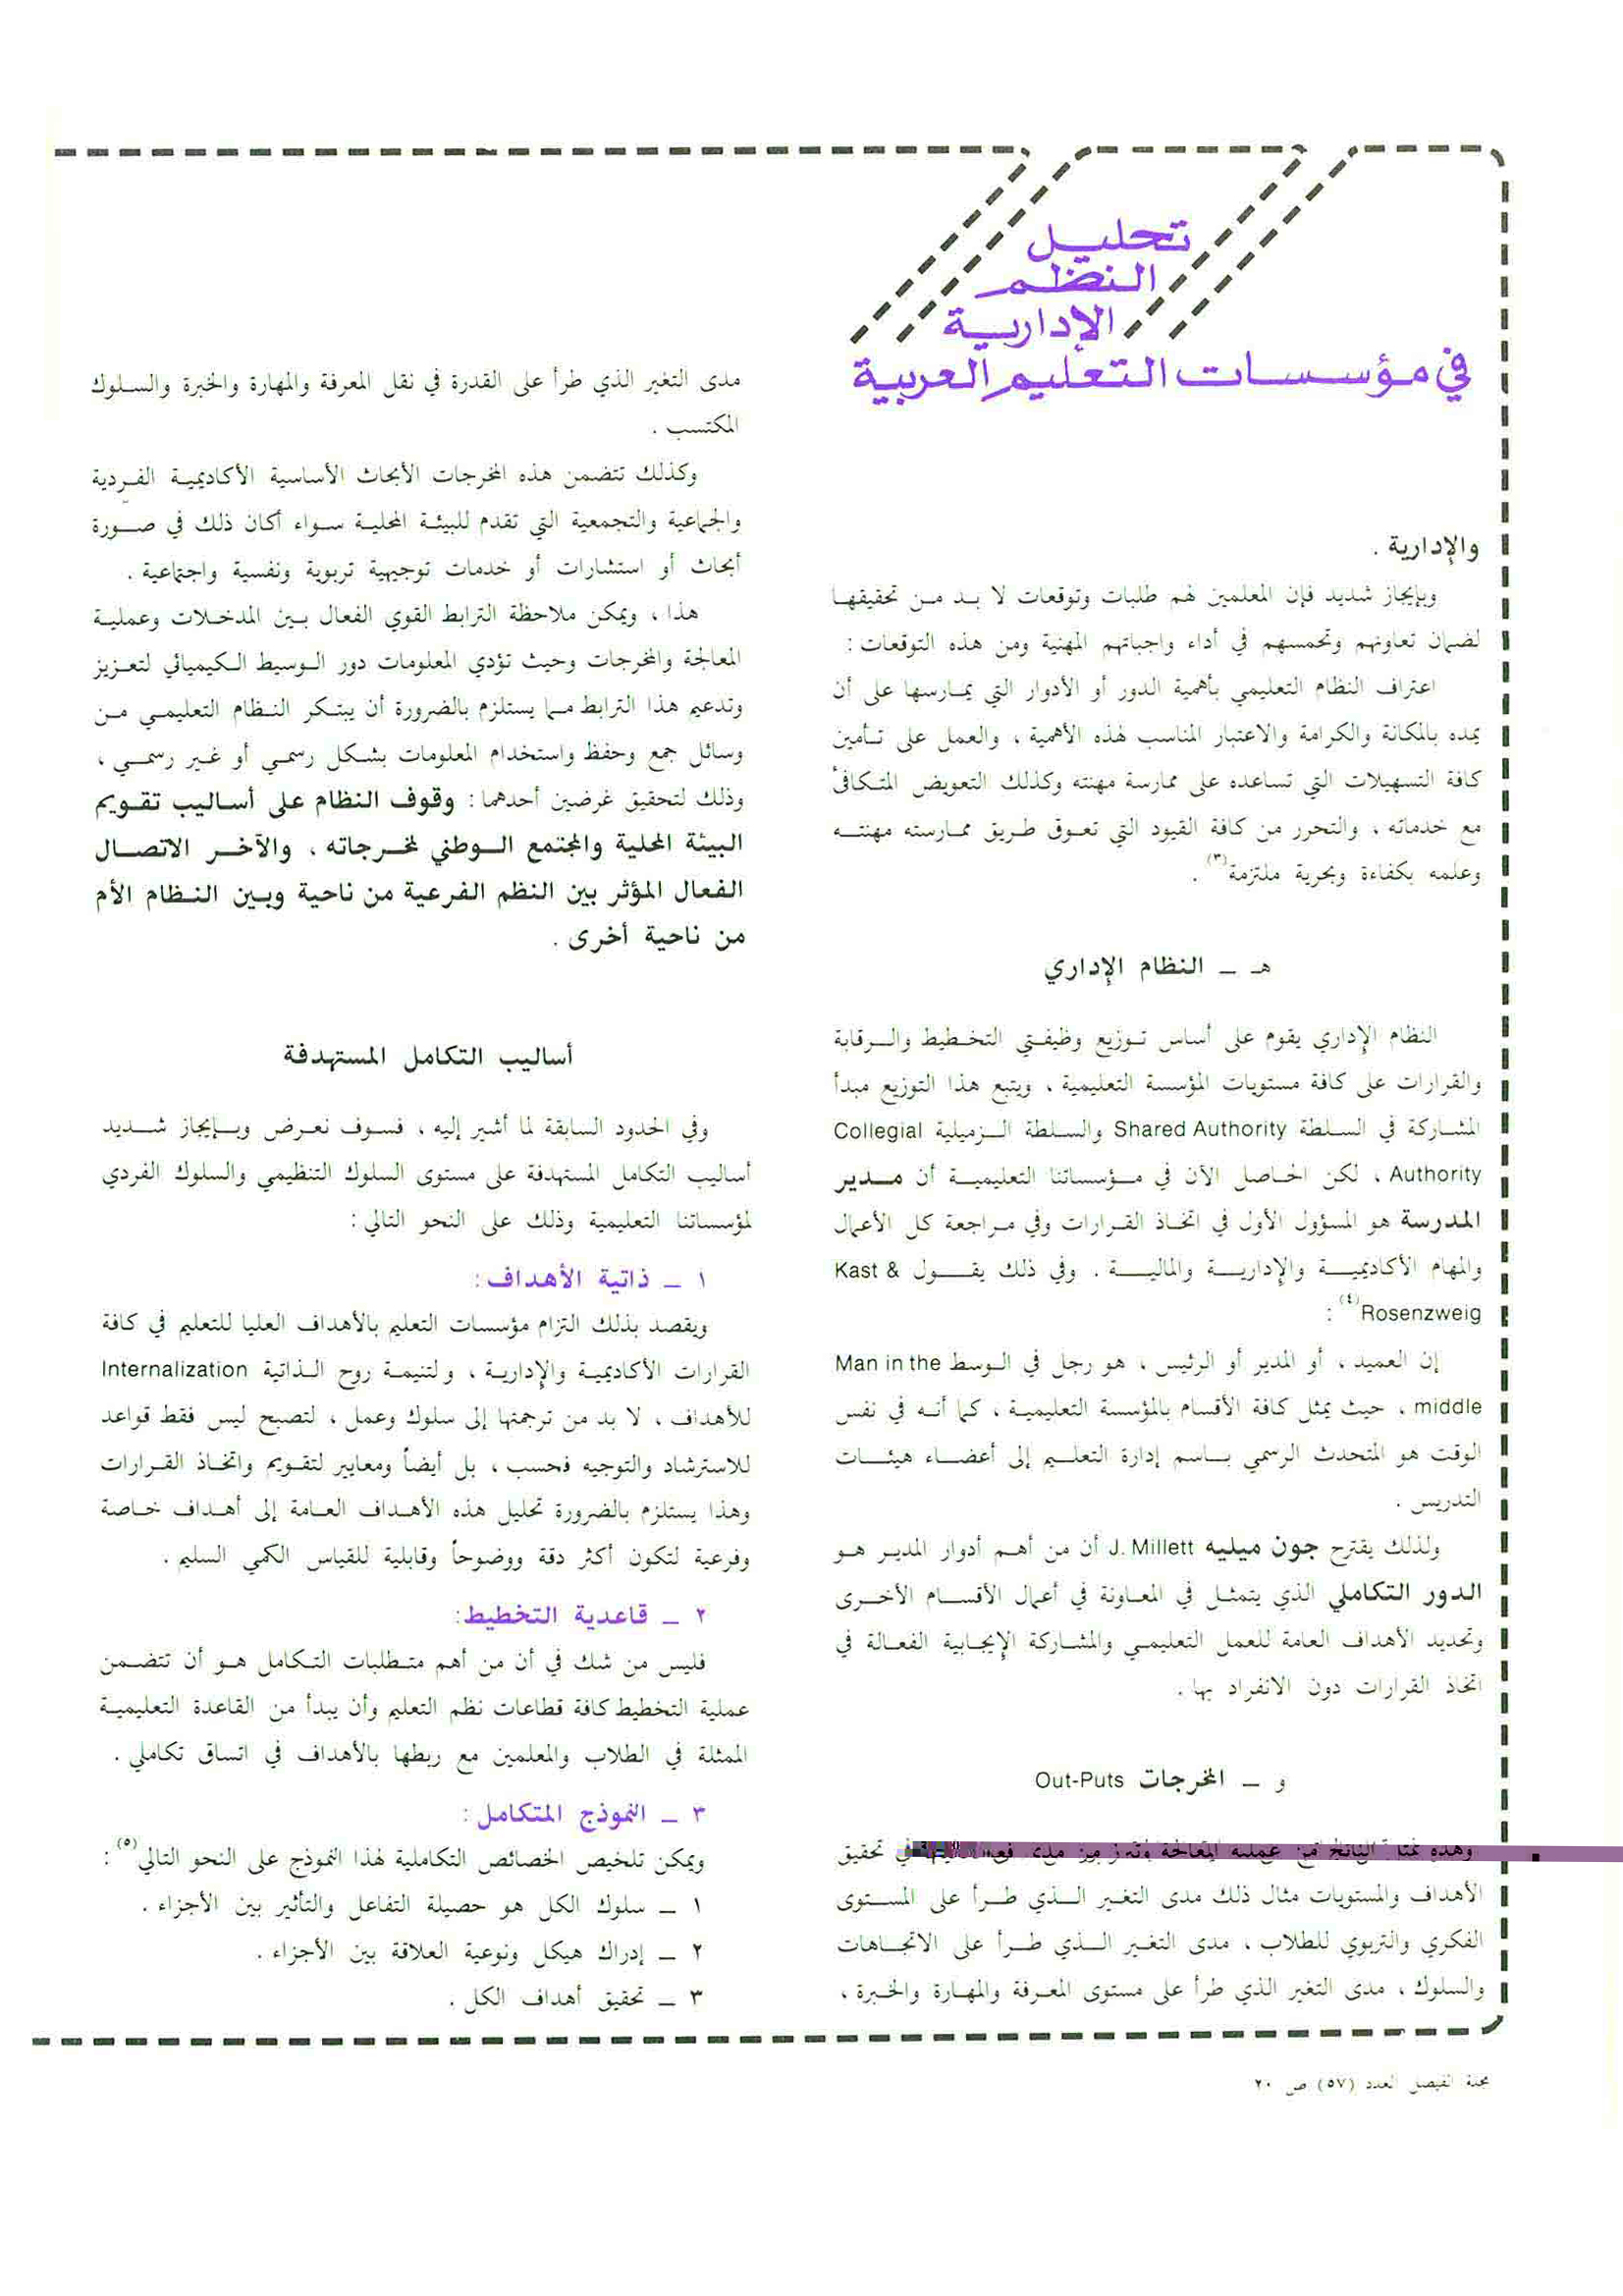 تحليل
النظم
الإدارية
في مؤسسات التعليم العربية
والإدارية .
وبإيجاز شديد فإن المعلمين لهم طلبات وتوقعات لا بد من تحقيقها
لضمان تعاونهم وتحمسهم في أداء واجباتهم المهنية ومن هذه التوقعات :
اعتراف النظام التعليمي بأهمية الدور أو الأدوار التي يمارسها على أن
يمده بالمكانة والكرامة والاعتبار المناسب لهذه الأهمية ، والعمل على تأمين
كافة التسهيلات التي تساعده على ممارسة مهنته وكذلك التعويض المتكافئ
مع خدماته ، والتحرر من كافة القيود التي تعوق طريق ممارسته مهنته
وعلمه بكفاءة وبحرية ملتزمة(٣) .
هـ ـ النظام الإداري
النظام الإداري يقوم على أساس توزيع وظيفتي التخطيط والرقابة
والقرارات على كافة مستويات المؤسسة التعليمية ، ويتبع هذا التوزيع مبدأ
المشاركة في السلطة Shared Authority والسلطة الزميلية Collegial
Authority ، لكن الحاصل الآن في مؤسساتنا التعليمية أن مدير
المدرسة هو المسؤول الأول في اتخاذ القرارات وفي مراجعة كل الأعمال
والمهام الأكاديمية والإدارية والمالية . وفي ذلك يقول Kast &
Rosenzweig(٤) :
إن العميد ، أو المدير أو الرئيس ، هو رجل في الوسط Man in the
middle ، حيث يمثل كافة الأقسام بالمؤسسة التعليمية ، كما أنه في نفس
الوقت هو المتحدث الرسمي باسم إدارة التعليم إلى أعضاء هيئات
التدريس .
ولذلك يقترح جون ميليه J. Millett أن من أهم أدوار المدير هو
الدور التكاملي الذي يتمثل في المعاونة في أعمال الأقسام الأخرى
وتحديد الأهداف العامة للعمل التعليمي والمشاركة الإيجابية الفعالة في
اتخاذ القرارات دون الانفراد بها .
و ـ المخرجات Out-Puts
وهذه تمثل الناتج من عملية المعالجة وتبرز من مدى في تحقيق
الأهداف والمستويات مثال ذلك مدى التغير الذي طرأ على المستوى
الفكري والتربوي للطلاب ، مدى التغير الذي طرأ على الاتجاهات
والسلوك ، مدى التغير الذي طرأ على مستوى المعرفة والمهارة والخبرة ،
مدى التغير الذي طرأ على القدرة في نقل المعرفة والمهارة والخبرة والسلوك
المكتسب .
وكذلك تتضمن هذه المخرجات الأبحاث الأساسية الأكاديمية الفردية
والجماعية والتجمعية التي تقدم للبيئة المحلية سواء أكان ذلك في صورة
أبحاث أو استشارات أو خدمات توجيهية تربوية ونفسية واجتماعية .
هذا ، ويمكن ملاحظة الترابط القوي الفعال بين المدخلات وعملية
المعالجة والمخرجات وحيث تؤدي المعلومات دور الوسيط الكيميائي لتعزيز
وتدعيم هذا الترابط مما يستلزم بالضرورة أن يبتكر النظام التعليمي من
وسائل جمع وحفظ واستخدام المعلومات بشكل رسمي أو غير رسمي ،
وذلك لتحقيق غرضين أحدهما : وقوف النظام على أساليب تقويم
البيئة المحلية والمجتمع الوطني لمخرجاته ، والآخر الاتصال
الفعال المؤثر بين النظم الفرعية من ناحية وبين النظام الأم
من ناحية أخرى .
أساليب التكامل المستهدفة
وفي الحدود السابقة لما أشير إليه ، فسوف نعرض وبإيجاز شديد
أساليب التكامل المستهدفة على مستوى السلوك التنظيمي والسلوك الفردي
لمؤسساتنا التعليمية وذلك على النحو التالي :
١ ـ ذاتية الأهداف :
ويقصد بذلك التزام مؤسسات التعليم بالأهداف العليا للتعليم في كافة
القرارات الأكاديمية والإدارية ، ولتنيمة روح الذاتية Internalization
للأهداف ، لا بد من ترجمتها إلى سلوك وعمل ، لتصبح ليس فقط قواعد
للاسترشاد والتوجيه فحسب ، بل أيضاً ومعايير لتقويم واتخاذ القرارات
وهذا يستلزم بالضرورة تحليل هذه الأهداف العامة إلى أهداف خاصة
وفرعية لتكون أكثر دقة ووضوحاً وقابلية للقياس الكمي السليم .
٢ ـ قاعدية التخطيط :
فليس من شك في أن من أهم متطلبات التكامل هو أن تتضمن
عملية التخطيط كافة قطاعات نظم التعليم وأن يبدأ من القاعدة التعليمية
الممثلة في الطلاب والمعلمين مع ربطها بالأهداف في اتساق تكاملي .
٣ ـ النموذج المتكامل :
ويمكن تلخيص الخصائص التكاملية لهذا النموذج على النحو التالي(٥) :
١ ـ سلوك الكل هو حصيلة التفاعل والتأثير بين الأجزاء .
٢ ـ إدراك هيكل ونوعية العلاقة بين الأجزاء .
٣ ـ تحقيق أهداف الكل .
مجلة الفيصل العدد (٥٧) ص ٢٠